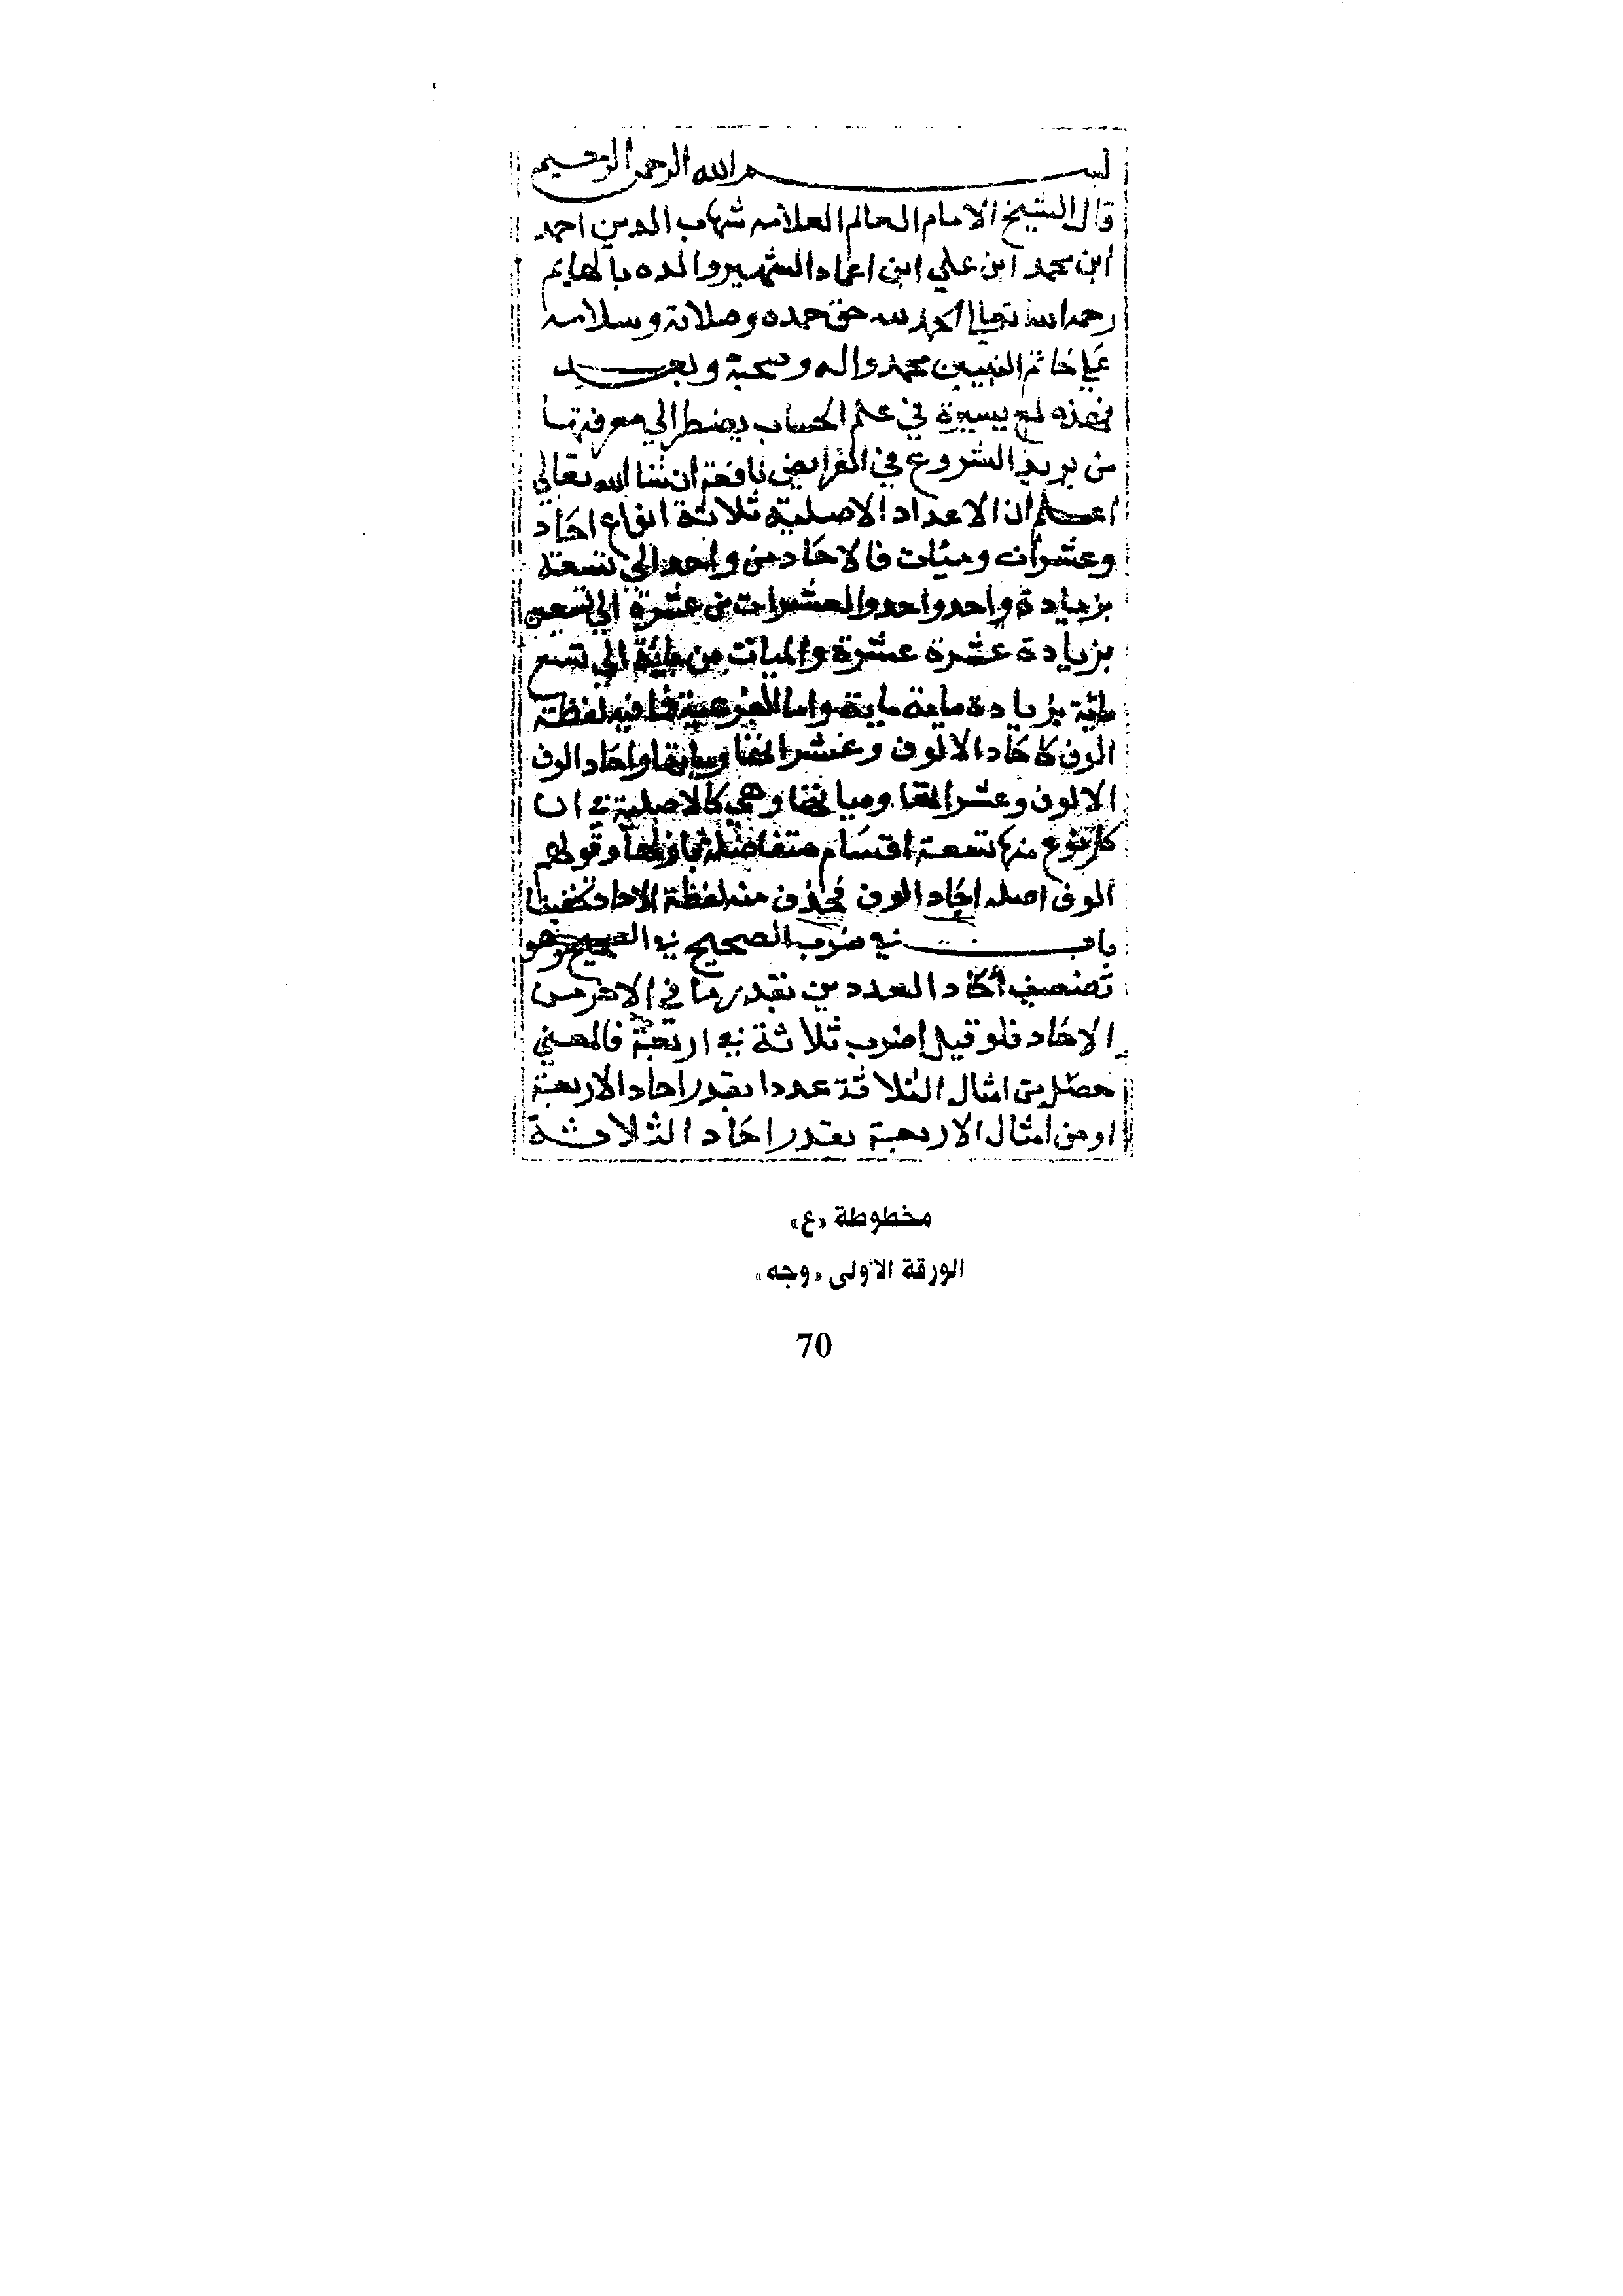 بسم الله الرحمن الرحيم
قال الشيخ الامام العالم العلامه شهاب الدين احمد
ابن محمد ابن علي ابن اعماد الشهير والده بالهايم
رحمه الله تعالي الحمد لله حق حمده وصلاته وسلامه
علي خاتم النبيين محمد واله وصحبة وبعد
فهذه لمع يسيرة في علم الحساب يضطر الي معرفتها
من يريد الشروع في الفرايض نافعة ان شا الله تعالي
اعلم ان الاعداد الاصلية ثلاثة انواع احاد
وعشرات ومئات فالاحاد من واحد الي تسعة
بزيادة واحد واحد والعشرات من عشرة الي تسعين
بزيادة عشرة عشرة والميات من مائة الي تسع
مائية بزيادة ماية ماية واما الفرعية فما فيه لفظة
الوف كاحاد الالوف وعشراتها ومياتها واحاد الوف
الالوف وعشراتها ومياتها وهي كالاصلية في ان
كل نوع منها تسعة اقسام متفاضلة باولها وقولهم
الوف اصله احاد الوف فحذف منه لفظة الاحاد تخفيفا
باب في ضرب الصحيح في الصحيح وهو
تضعيف احاد العددين بقدر ما في الاخر من
الاحاد فلو قيل اضرب ثلاثة في اربعة فالمعني
حصل من امثال الثلاثة عددا بقدر احاد الاربعة
او من امثال الاربعة بقدر احاد الثلاثة
مخطوطة «ع»
الورقة الأولى «وجه»
70